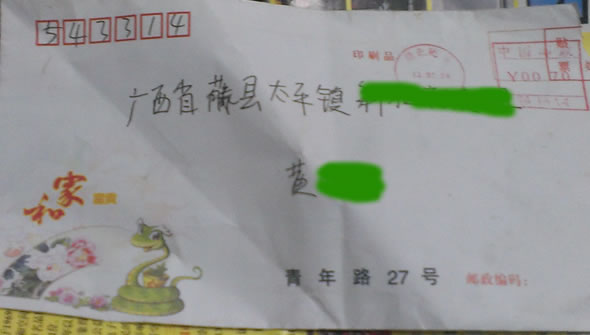 543314
印刷品
中国
¥00.70
邮票
广西省藤县太平镇
黄
家和
富贵
青年路27号 邮政编码: